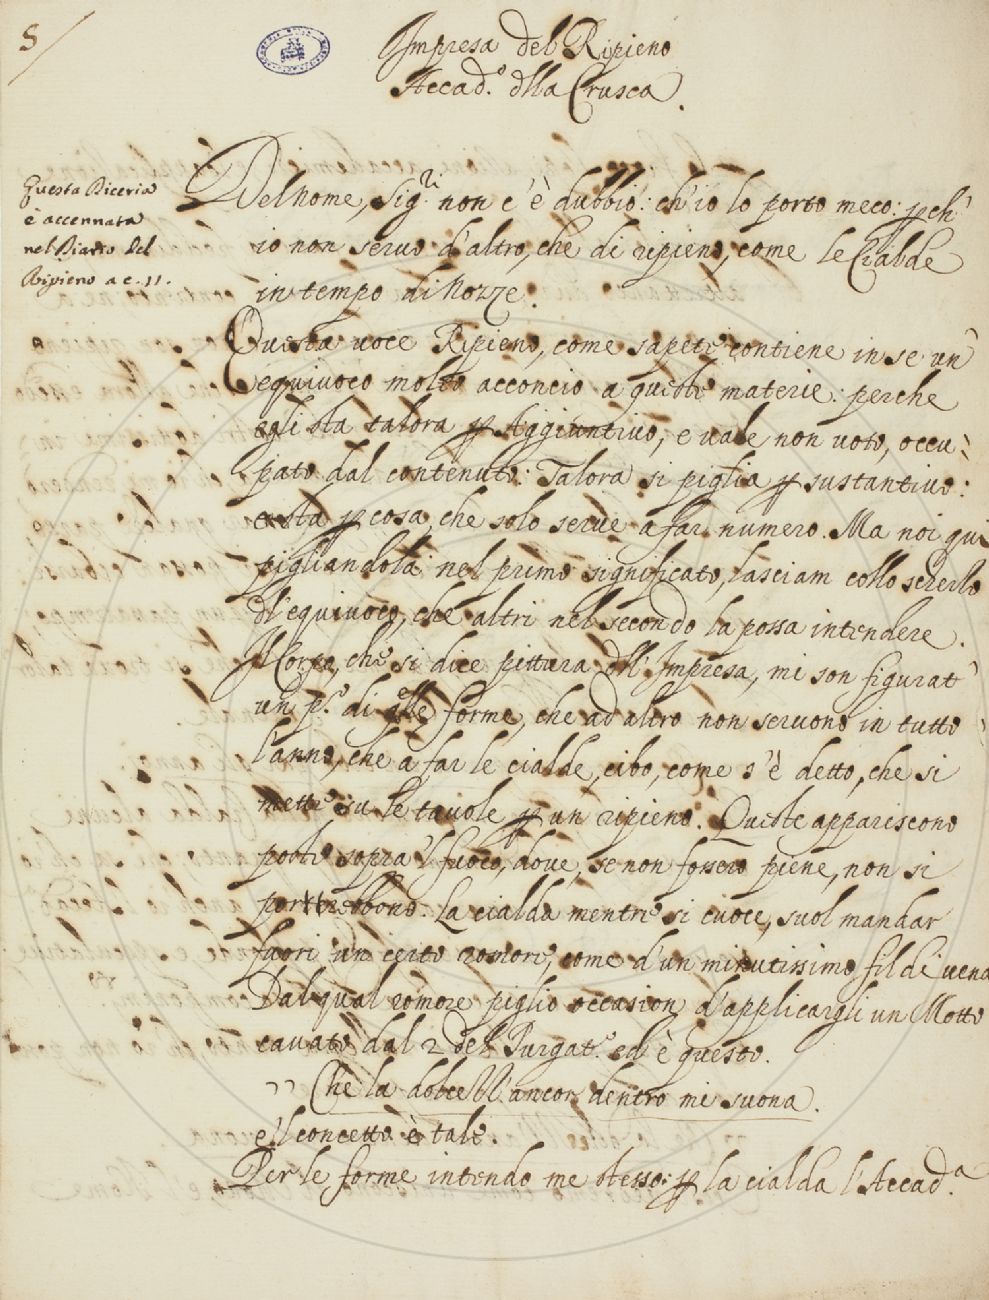 S
Impresa del Ripieno
Accad.º dlla Crusca.
Questa Diceria
è accennata
nel Diario del
Ripieno a c. 11.
Del nome, Sig.ri non c'è dubbio: ch'io lo porto meco: pch'
io non servo d'altro, che di ripieno, come le Cialde
in tempo di Nozze.
Questa voce Ripieno, come sapete, contiene in se un'
equivoco molto acconcio a queste materie: perche
egli sta talora p Aggiuntivo, e vale non voto, occu-
pato dal contenuto: Talora si piglia p sustantivo:
e sta p cosa, che solo serve a far numero. Ma noi qui
pigliandola nel primo significato, lasciam collo scherzo
dl'equivoco, che altri nel secondo la possa intendere.
Il Corpo, che si dice pittura dll'Impresa, mi son figurat'
un p.º di qlle forme, che ad altro non servono in tutto
l'anno, che a far le cialde, cibo, come s'è detto, che si
mette su le tavole p un ripieno. Queste appariscono
poste sopra 'l fuoco, dove, se non fossero piene, non si
porrebbono. La cialda mentre si cuoce, suol mandar
fuori un certo romore, come d'un minutissimo fil di vena
Dal qual romore piglio occasion d'applicargli un Motto
cavato dal 2 del Purgat.º ed è questo.
Che la dolce~~~ ancor dentro mi suona.
e'l concetto è tale.
Per le forme intendo me stesso: p la cialda l'Accad.a